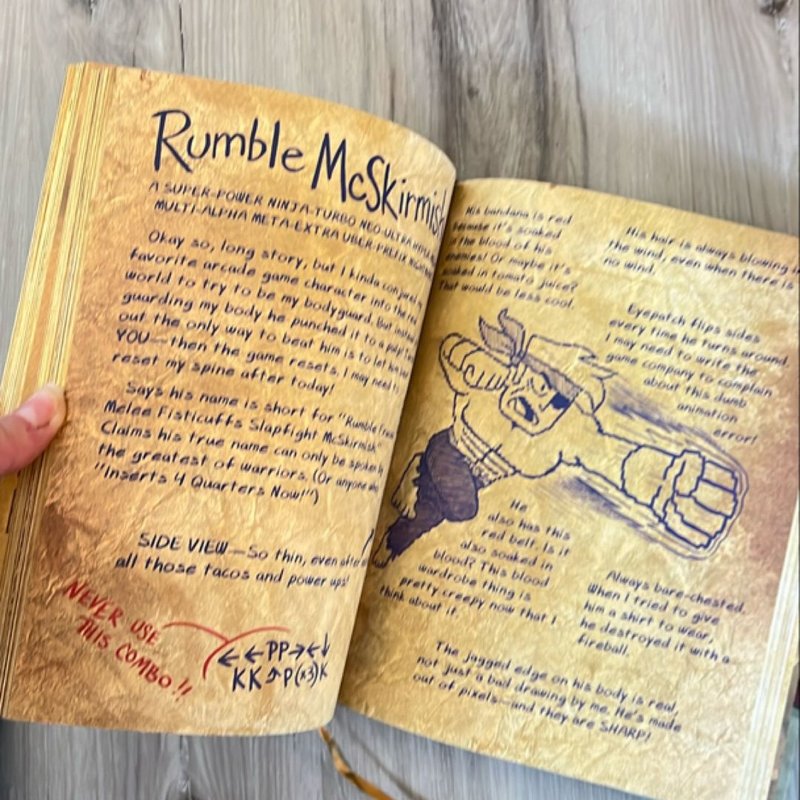 Rumble McSkirmish
A SUPER-POWER NINJA-TURBO NEO-ULTRA
MULTI-ALPHA META-EXTRA UBER-PREFIX
Okay so, long story, but I kinda conjured
favorite arcade game character into the real
world to try to be my bodyguard. But instead
guarding my body he punched it to a pulp!
out the only way to beat him is to let him
YOU—then the game resets. I may need to
reset my spine after today!
Says his name is short for "Rumble
Melee Fisticuffs Slapfight McSkirmish."
Claims his true name can only be spoken by
the greatest of warriors. (Or anyone who
"Inserts 4 Quarters Now!")
SIDE VIEW—So thin, even after
all those tacos and power ups!
NEVER USE
THIS COMBO!!
← ← PP → ← ↓
KK P(x3)K
His bandana is red
because it's soaked
in the blood of his
enemies! Or maybe it's
soaked in tomato juice?
That would be less cool.
His hair is always blowing in
the wind, even when there is
no wind.
Eyepatch flips sides
every time he turns around.
I may need to write the
game company to complain
about this dumb
animation
error!
He
also has this
red belt. Is it
also soaked in
blood? This blood
wardrobe thing is
pretty creepy now that I
think about it.
Always bare-chested.
When I tried to give
him a shirt to wear,
he destroyed it with a
fireball.
The jagged edge on his body is real,
not just a bad drawing by me. He's made
out of pixels—and they are SHARP!